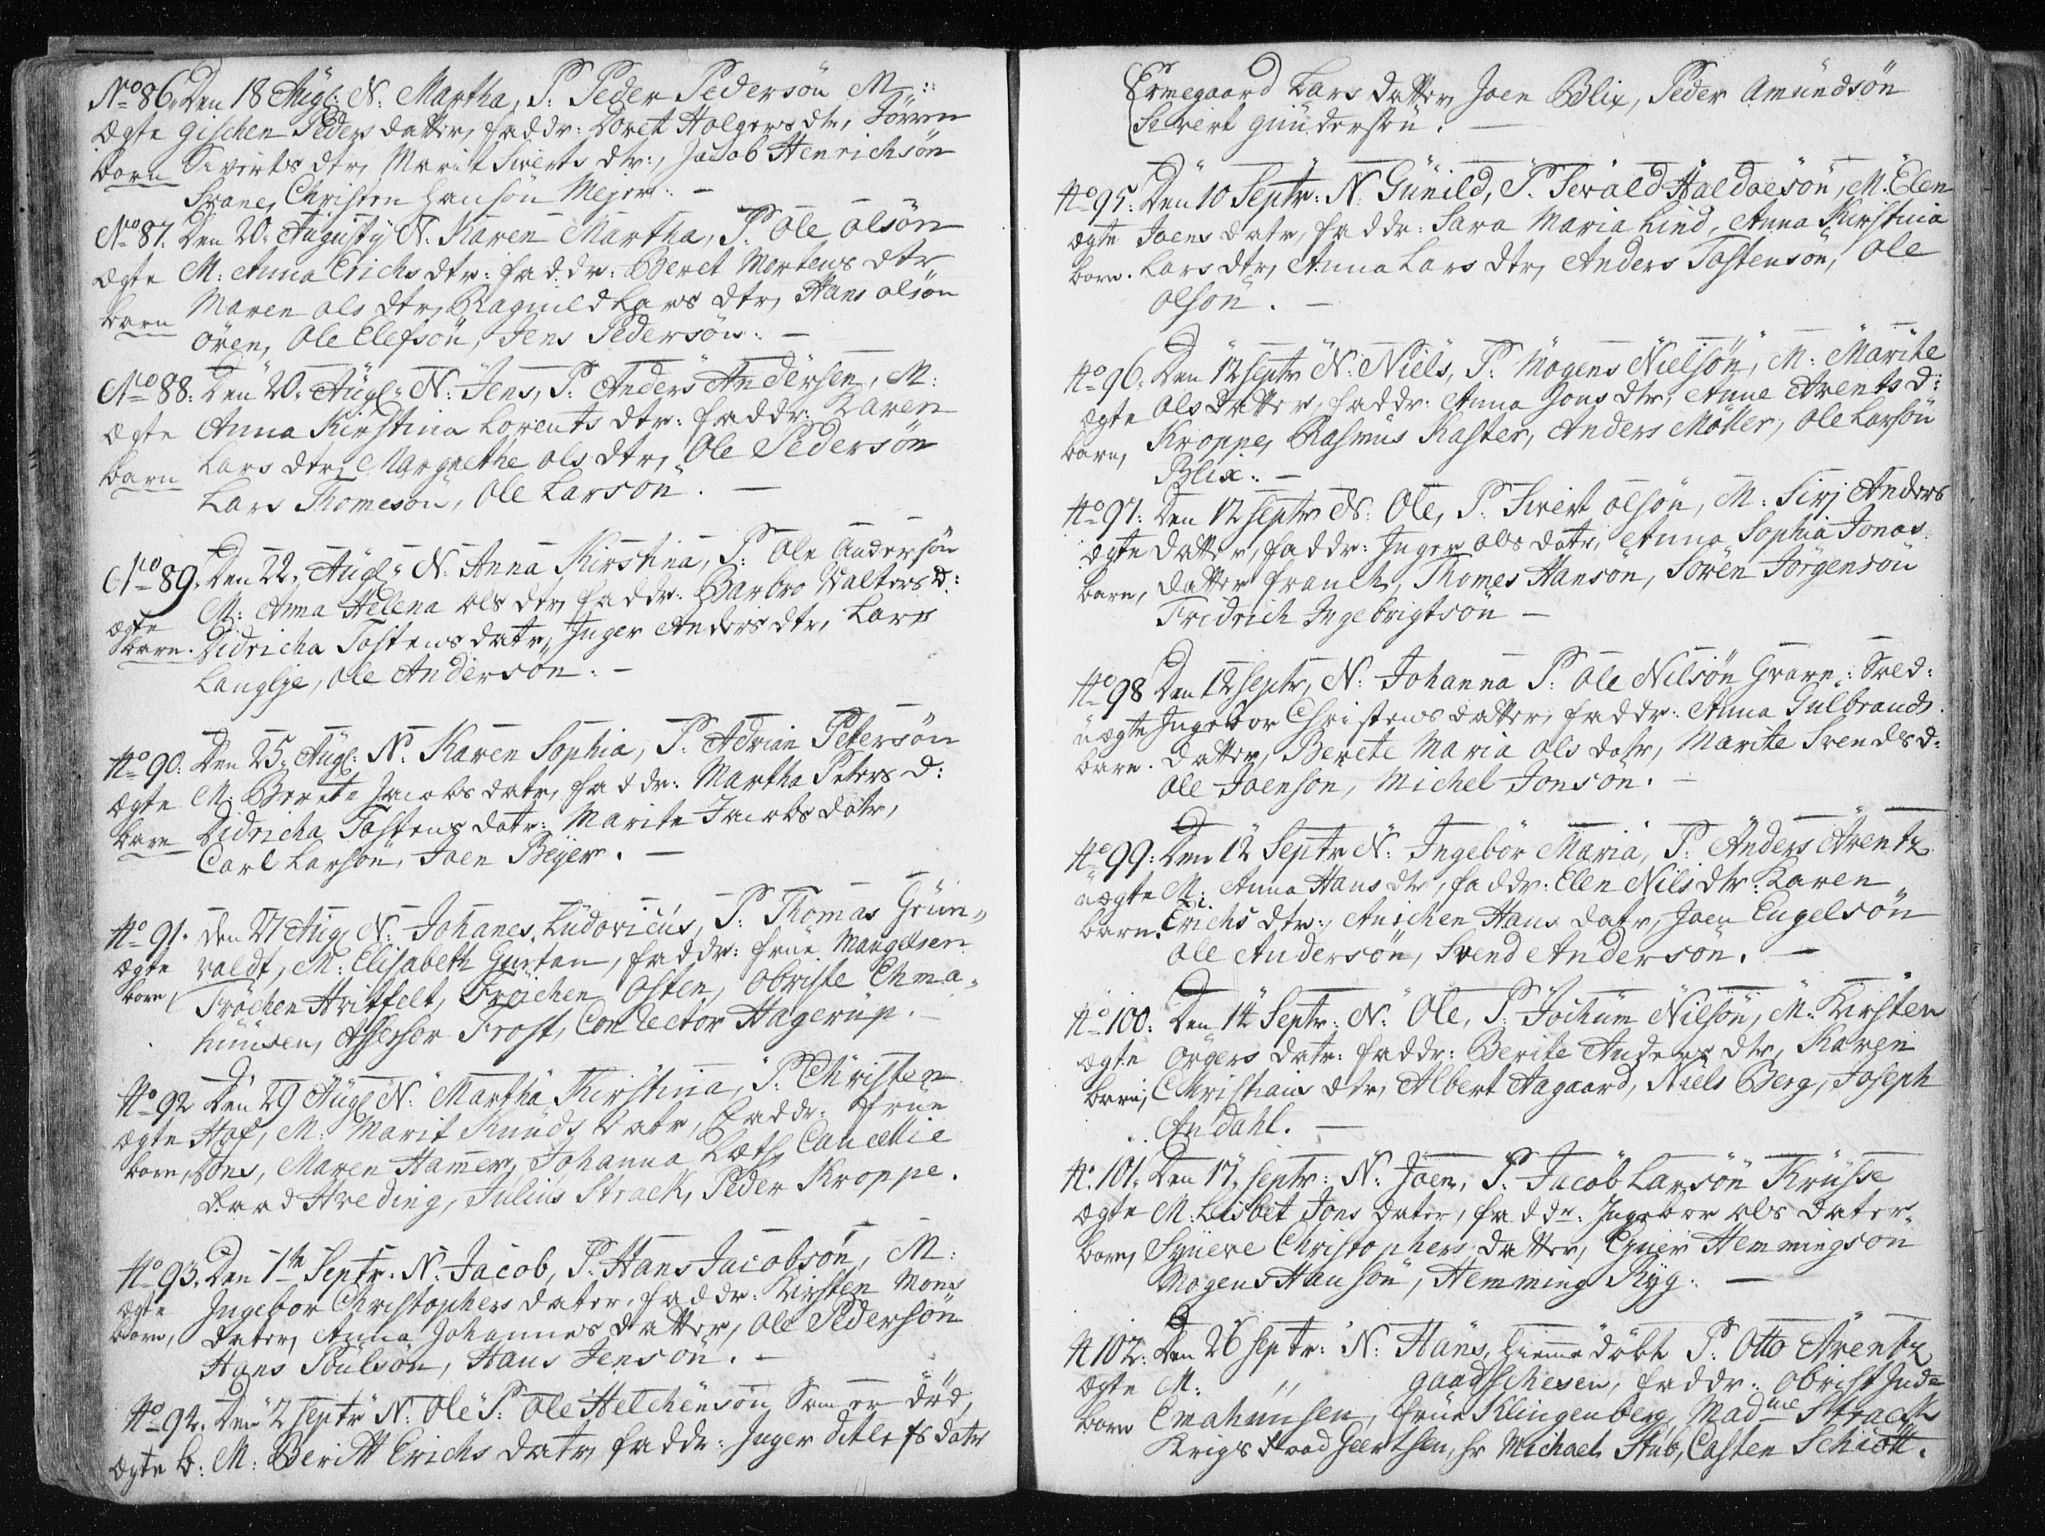 No 86. Den 18 Augl: N. Martha, P. Peder Pedersön M::
ægte Gischen Peders datter, faddr: Doret Holgers dtr, Sörren
barn Siverts dtr, Marit Siverts dtr:, Jacob Henrichsön
Svane, Christen Hansön Mejer. —
No 87. Den 20. Augusty N. Karen Martha, P. Ole Olsön
ægte M: Anna Erichs dtr: faddr: Beret Mortens dtr
barn Maren Ols dtr, Ragnild Lars dtr, Hans Olsön
Ören, Ole Elefsön, Jens Pedersön. —
No 88: Den 20. Augl: N: Jens, P. Anders Andersen, M:
ægte Anna Kirstina Lorents dtr: faddr: Karen
barn Lars dtr, Margrethe Ols dtr, Ole Pedersön
Lars Thomesön, Ole Larsön. —
No 89. Den 22. Augl: N. Anna Kirstina, P: Ole Andersön
ægte M: Anna Helena Ols dtr, faddr: Barbro Walters D:
barn. Didricha Tostens datr, Inger Anders dtr, Lars
Langlje, Ole Andersön. —
No 90: Den 25. Augl: N. Karen Sophia, P. Adrian Petersön
ægte M. Berete Jacobs datr, faddr: Martha Peters D:
barn Didricha Tostens datr: Marite Jacobs datr,
Carl Larsön, Joen Beyer. —
No 91. den 27 Augl N: Johanes Ludovicus, P. Thomas Grün„
ægte valdt, M: Elisabeth Gurtan, faddr: frue Mangelsen
barn, Fröchen Hvitfelt, Fröichen Osten, Obriste Ema„
hunsen, Assessor Frost, Conrector Hagerup. —
No 92 Den 29 Augl N: Martha Kirstina, P: Christen
ægte Hof, M. Marit Knuds datr, faddr: frue
barn, Döns, Maren Hamer, Johanna Læth, Cancellie
Raad Hveding, Julius Strack, Peder Kroppe.
No 93. Den 1te Septr: N: Jacob, P. Hans Jacobsön, M:
ægte Ingebor Christophers dater, faddr: Kirsten Mons
barn, dater, Anna Johannes datter, Ole Pedersön
Hans Poulsön, Hans Jensön. —
No 94. Den 2 Septr N: Ole P: Ole Helchensön Som er död,
ægte b: M: Beritt Erichs datr, faddr: Inger Ditlefs datr
Ermegaard Lars datter, Joen Blix, Peder Amundsön
Sivert Gundersön. —
No 95: Den 10 Septr: N: Gunild, P. Sevald Haldoesön, M. Elen
ægte Joens datr, faddr: Sara Maria Lind, Anna Kirstina
barn. Lars dtr, Anna Lars dtr, Anders Tostensön, Ole
Olsön. —
No 96. Den 12 Septr N: Niels, P. Mogens Nielsön, M: Marite
ægte Ols datter, faddr: Anna Jons dtr, Anne Arents d:
barn, Kroppe, Rasmus Kaster, Anders Möller, Ole Larsön
Blix. —
No 97: Den 12 Septr N: Ole, P. Sivert Olsön, M: Sirj Anders
ægte datter, faddr: Inger Ols datr, Anna Sophia Jonas
barn, datter Franck, Thomes Hansön, Sören Jörgensön
Fridrich Ingebrigtsön —
No 98 Den 12 Septr, N: Johanna P: Ole Nilsön Gravn: Sold:
uægte Ingebor Christens datter, faddr: Anna Gulbrands
barn. datter, Berete Maria Ols datr, Marite Svends d:
Ole Joensön, Michel Jonsön. —
No 99: Den 12 Septr N: Ingebor Maria, P: Anders Arentz
uægte M: Anna Hans dtr, faddr: Elen Nils dtr: Karen
barn. Erichs dtr:, Anichen Hans datr, Joen Engelsön
Ole Andersön, Svend Andersön. —
No 100: Den 14 Septr: N: Ole, P: Jochum Nilsön, M: Kirsten
ægte Örgers datr: faddr: Berite Anders dtr, Karen
barn, Christians dtr, Albert Aagaard, Niels Berg, Joseph
Andahl. —
No. 101. Den 17. Septr: N: Joen, P: Jacob Larsön Krusse
ægte M: Lisbet Jons dater, faddr: Ingebor Ols dater,
barn, Syneve Christophers datter, Eyner Hemmingsön
Mogens Hansön, Hemming Ryg. —
N 102: Den 26 Septr: N: Hans, hiemme döbt P: Otto Arentz
ægte M: „ Gaadschesen, faddr: Obristinde
barn Emahunsen, frue Klingenberg, Madme Strack
Krigs Raad Geertsen, Hr Michael Stub, Casten Schiött.